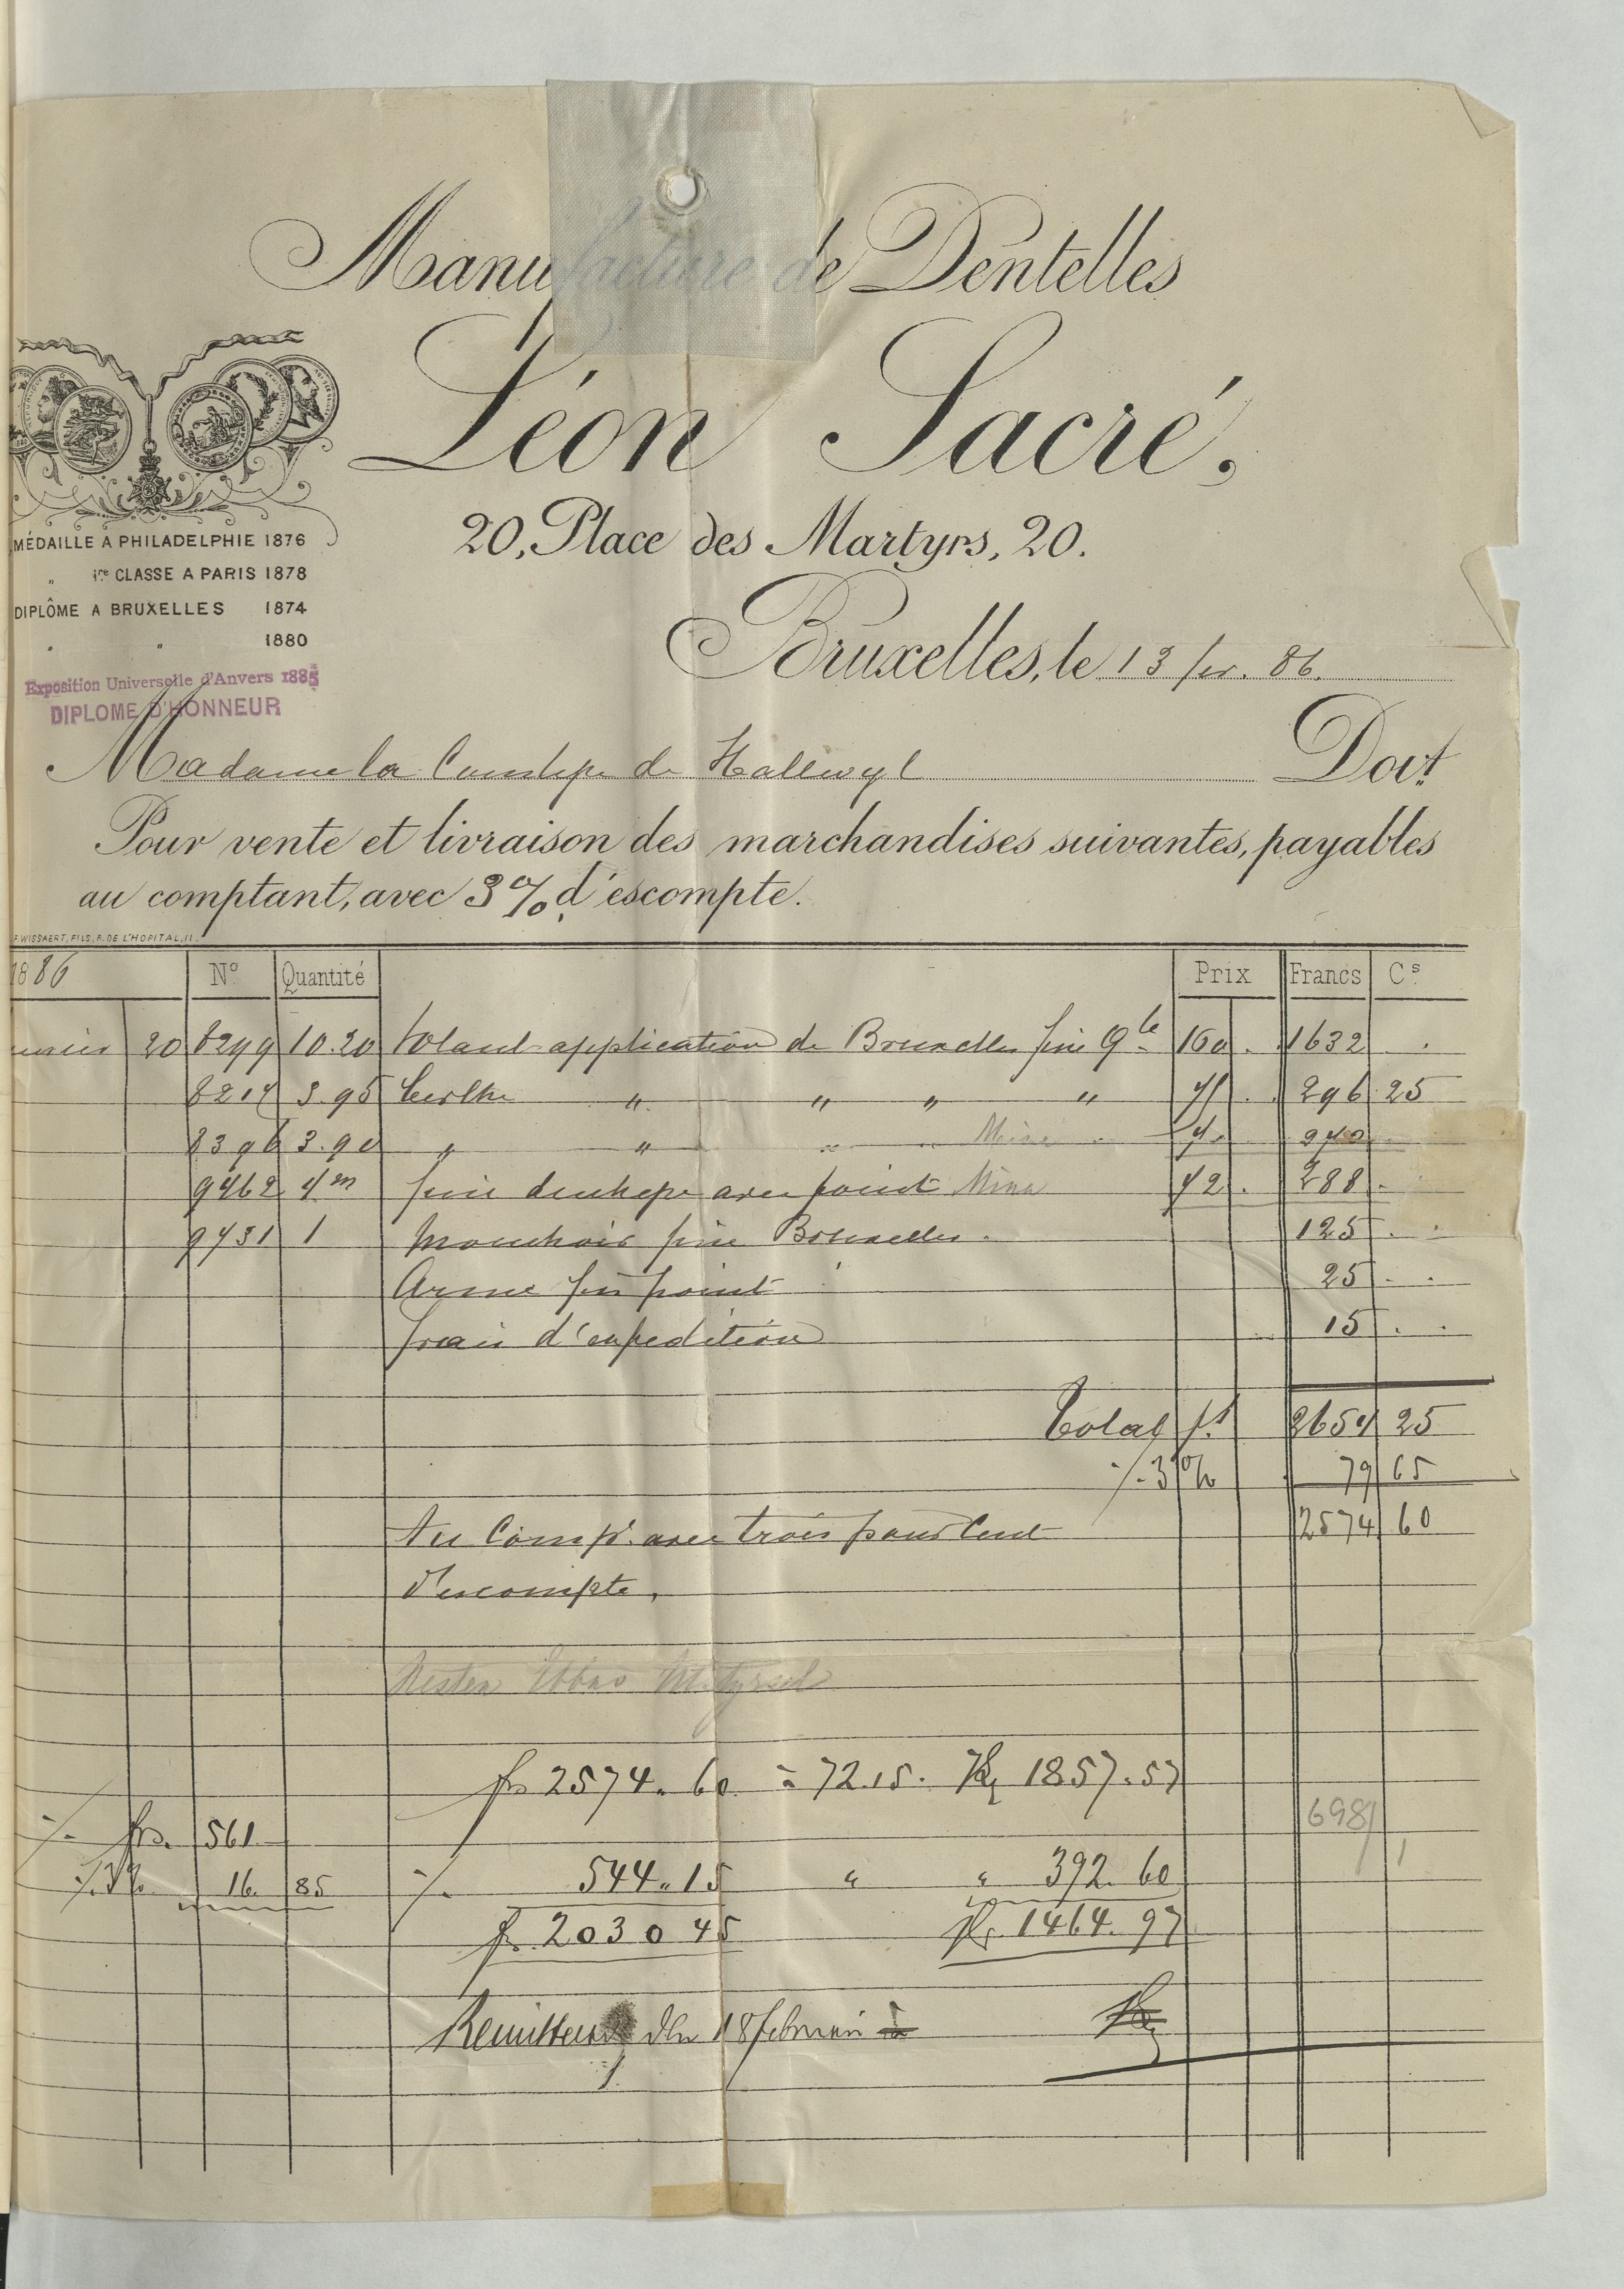 Manufacture de Dentelles
Léon Sacré,
20, Place des Martyrs, 20.
MÉDAILLE A PHILADELPHIE 1876
„ 1re CLASSE A PARIS 1878
DIPLÔME A BRUXELLES 1874
„ „ 1880
Exposition Universelle d'Anvers 1885
DIPLOME D'HONNEUR
Bruxelles, le 13 fer. 86.
Madame la Comtesse de Hallwyl Doit
Pour vente et livraison des marchandises suivantes, payables
au comptant, avec 3% d'escompte.
F. WISSAERT, FILS, R. DE L'HOPITAL, 11.
1886 No. Quantité Prix Francs Cs.
20 8299 10.20 Volant application de Bruxelles fine Qté 160 . 1632 .
8214 3.95 Berthe „ „ „ „ 75 . 296 25
8396 3.90 „ „ „ „ Mina 70
9462 4m fine dentelle avec point Mina 72 . 288 .
9431 1 Mouchoir fine Bruxelles. 125 . .
Arme fin point 25 . .
frais d'expedition 15 . .
Total fs 2654 25
./. 3% 79 65
2574 60
Au Compt. avec trois pour Cent
d'escompte.
frs 2574.60 = 72.15. Kr 1857.57
6981
./. frs. 561
./. 3% 16. 85
./. 544.15 " " 392.60
fr. 2030 45 Kr. 1464.97
Remitterad den 18 februari